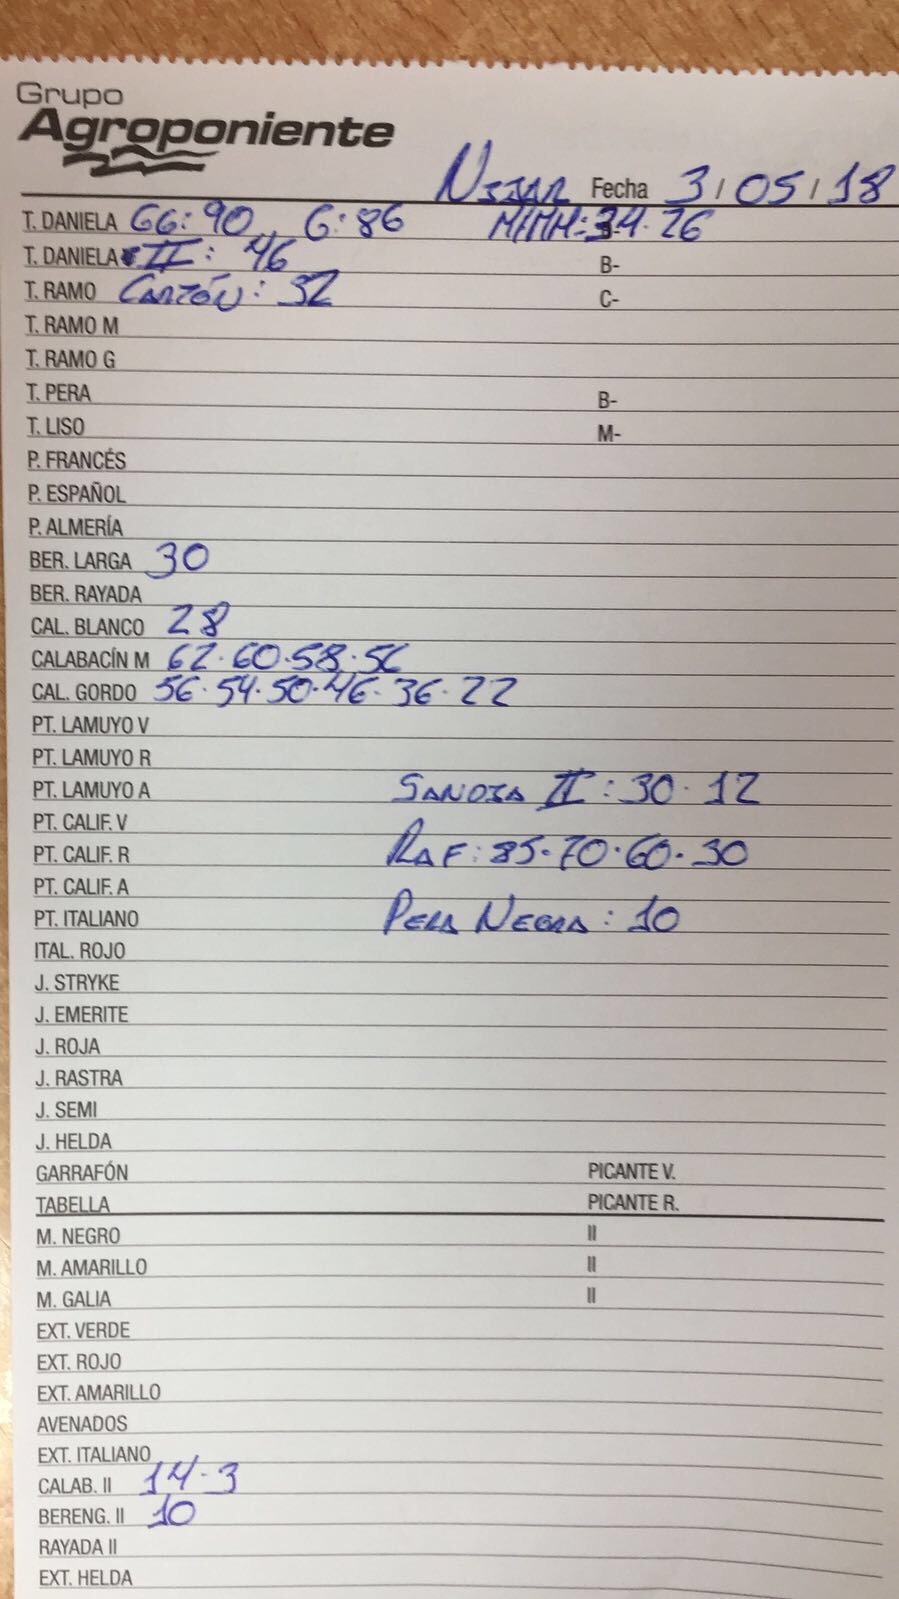 Grupo
Agroponiente
NIJAR Fecha 3/05/18
T. DANIELA GG: 90, G: 86 M/MM: 34·26
T. DANIELA II: 46 B-
T. RAMO CARZÓN: 32 C-
T. RAMO M
T. RAMO G
T. PERA B-
T. LISO M-
P. FRANCÉS
P. ESPAÑOL
P. ALMERÍA
BER. LARGA 30
BER. RAYADA
CAL. BLANCO 28
CALABACÍN M 62·60·58·56
CAL. GORDO 56·54·50·46·36·22
PT. LAMUYO V
PT. LAMUYO R
PT. LAMUYO A SANDIA II: 30·12
PT. CALIF. V
PT. CALIF. R RAF: 85·70·60·30
PT. CALIF. A
PT. ITALIANO PERA NEGRA: 10
ITAL. ROJO
J. STRYKE
J. EMERITE
J. ROJA
J. RASTRA
J. SEMI
J. HELDA
GARRAFÓN PICANTE V.
TABELLA PICANTE R.
M. NEGRO II
M. AMARILLO II
M. GALIA II
EXT. VERDE
EXT. ROJO
EXT. AMARILLO
AVENADOS
EXT. ITALIANO
CALAB. II 14·3
BERENG. II 10
RAYADA II
EXT. HELDA